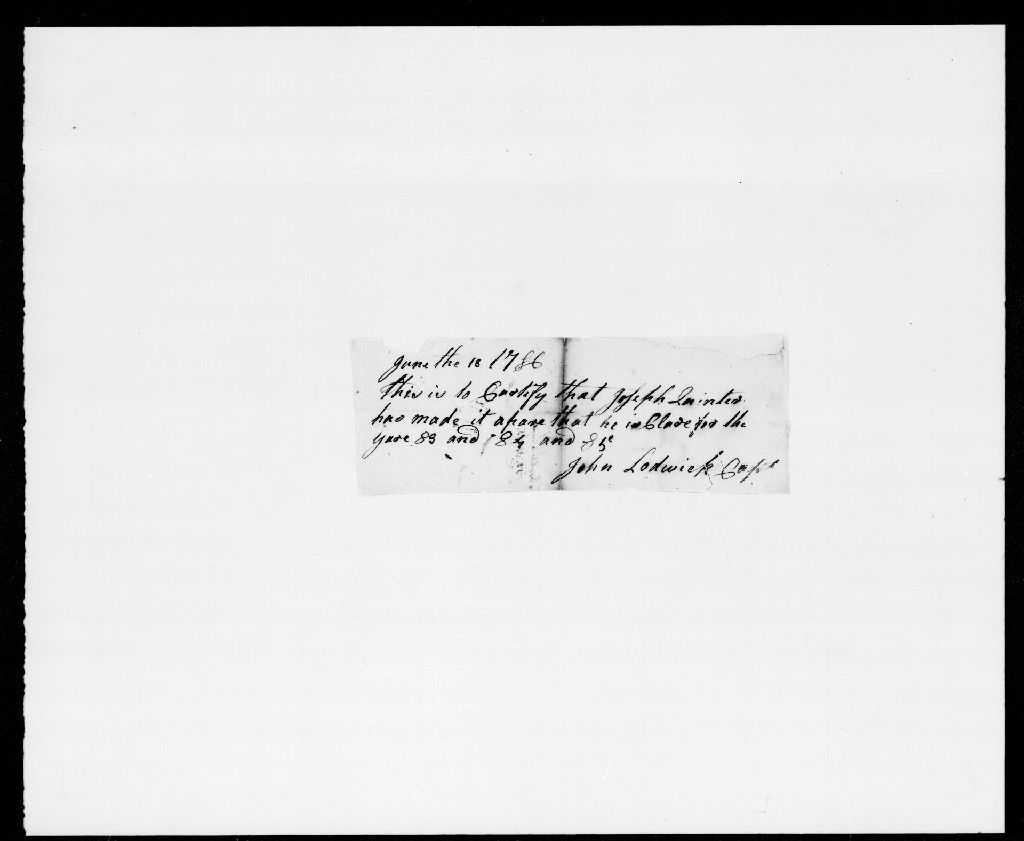 June the 18 1786
this is to Cartify that Joseph Quinter
has made it apare that he is Clare for the
yare 83 and 84 and 85
John Lodwick Capt